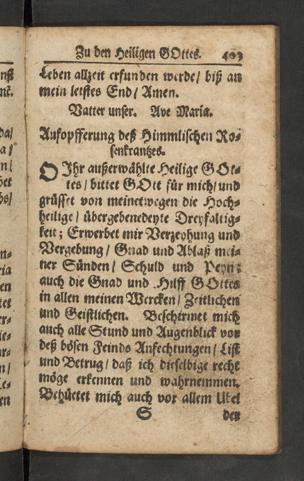 Zu den Heiligen GOttes.
Leben allzeit erfunden werde/ biß an
mein letstes End/ Amen.
Vatter unser. Ave Maria.
Aufopfferung deß Himmlischen Ro-
senkrantzes.
O Ihr außerwählte Heilige GOt-
tes/ bittet GOtt für mich/ und
grüsset von meinetwegen die Hoch-
heilige/ übergebenedeyte Dreyfaltig-
keit; Erwerbet mir Verzeyhung und
Vergebung/ Gnad und Ablaß mei-
ner Sünden/ Schuld und Peyn;
auch die Gnad und Hilff GOttes
in allen meinen Wercken/ Zeitlichen
und Geistlichen. Beschirmet mich
auch alle Stund und Augenblick vor
deß bösen Feinds Anfechtungen/ List
und Betrug/ daß ich dieselbige recht
möge erkennen und wahrnemmen.
Behüttet mich auch vor allem Ubel
S
den